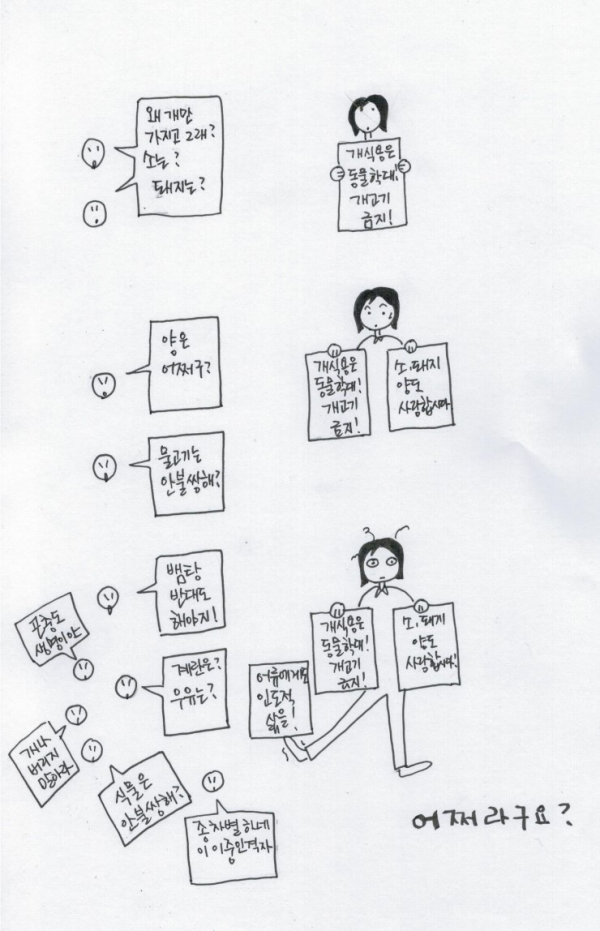 왜 개만
가지고 그래?
소는?
돼지는?
개식용은
동물학대!
개고기
금지!
양은
어쩌구?
개식용은
동물학대!
개고기
금지!
소,돼지
양도
사랑합시다
물고기는
안불쌍해?
뱀탕
반대도
해야지!
곤충도
생명이야
계란은?
우유는?
어류에게도
인도적
삶을!
개식용은
동물학대!
개고기
금지!
소,돼지
양도
사랑합시다!
개나
버리지
말아라
식물은
안불쌍해?
종차별하네
이 이중인격자
어쩌라구요?